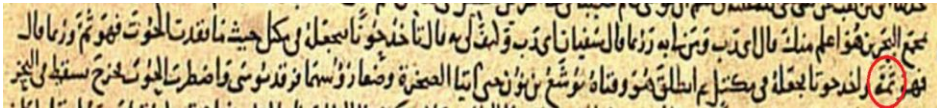 بمجمع البحرين هو اعلم منك قال اي رب ومن لي به وربما قال سفيان اي رب وكيف لي به قال تاخذ حوتا فتجعله في مكتل حيث ما فقدت الحوت فهو ثم وربما قال
فهو ثمه واخذ حوتا فجعله في مكتل ثم انطلق هو وفتاه يوشع بن نون حتى اتيا الصخرة وضعا رؤسهما فرقد موسى واضطرب الحوت فخرج فسقط في البحر